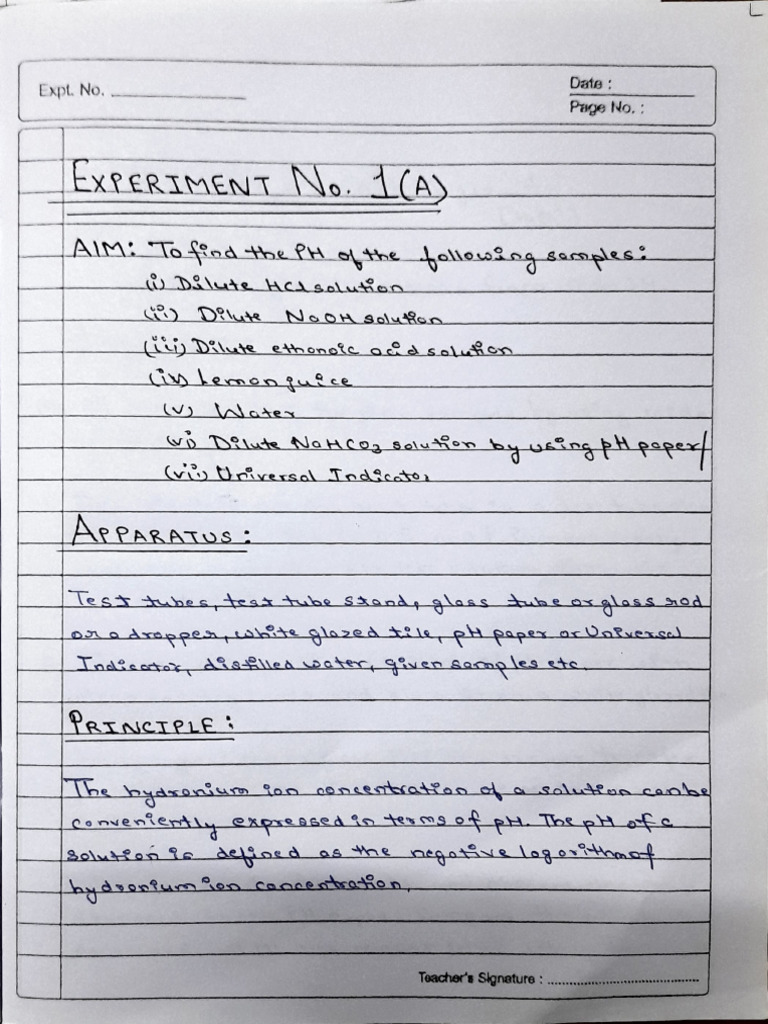 Expt. No.
Date :
Page No. :
EXPERIMENT No. 1(A)
AIM: To find the PH of the following samples:
(i) Dilute HCl solution
(ii) Dilute NaOH solution
(iii) Dilute ethanoic acid solution
(iv) Lemon juice
(v) Water
(vi) Dilute NaHCO₃ solution by using pH paper/
(vii) Universal Indicator
APPARATUS:
Test tubes, test tube stand, glass tube or glass rod
or a dropper, white glazed tile, pH paper or Universal
Indicator, distilled water, given samples etc.
PRINCIPLE:
The hydronium ion concentration of a solution can be
conveniently expressed in terms of pH. The pH of a
solution is defined as the negative logarithm of
hydronium ion concentration.
Teacher's Signature :